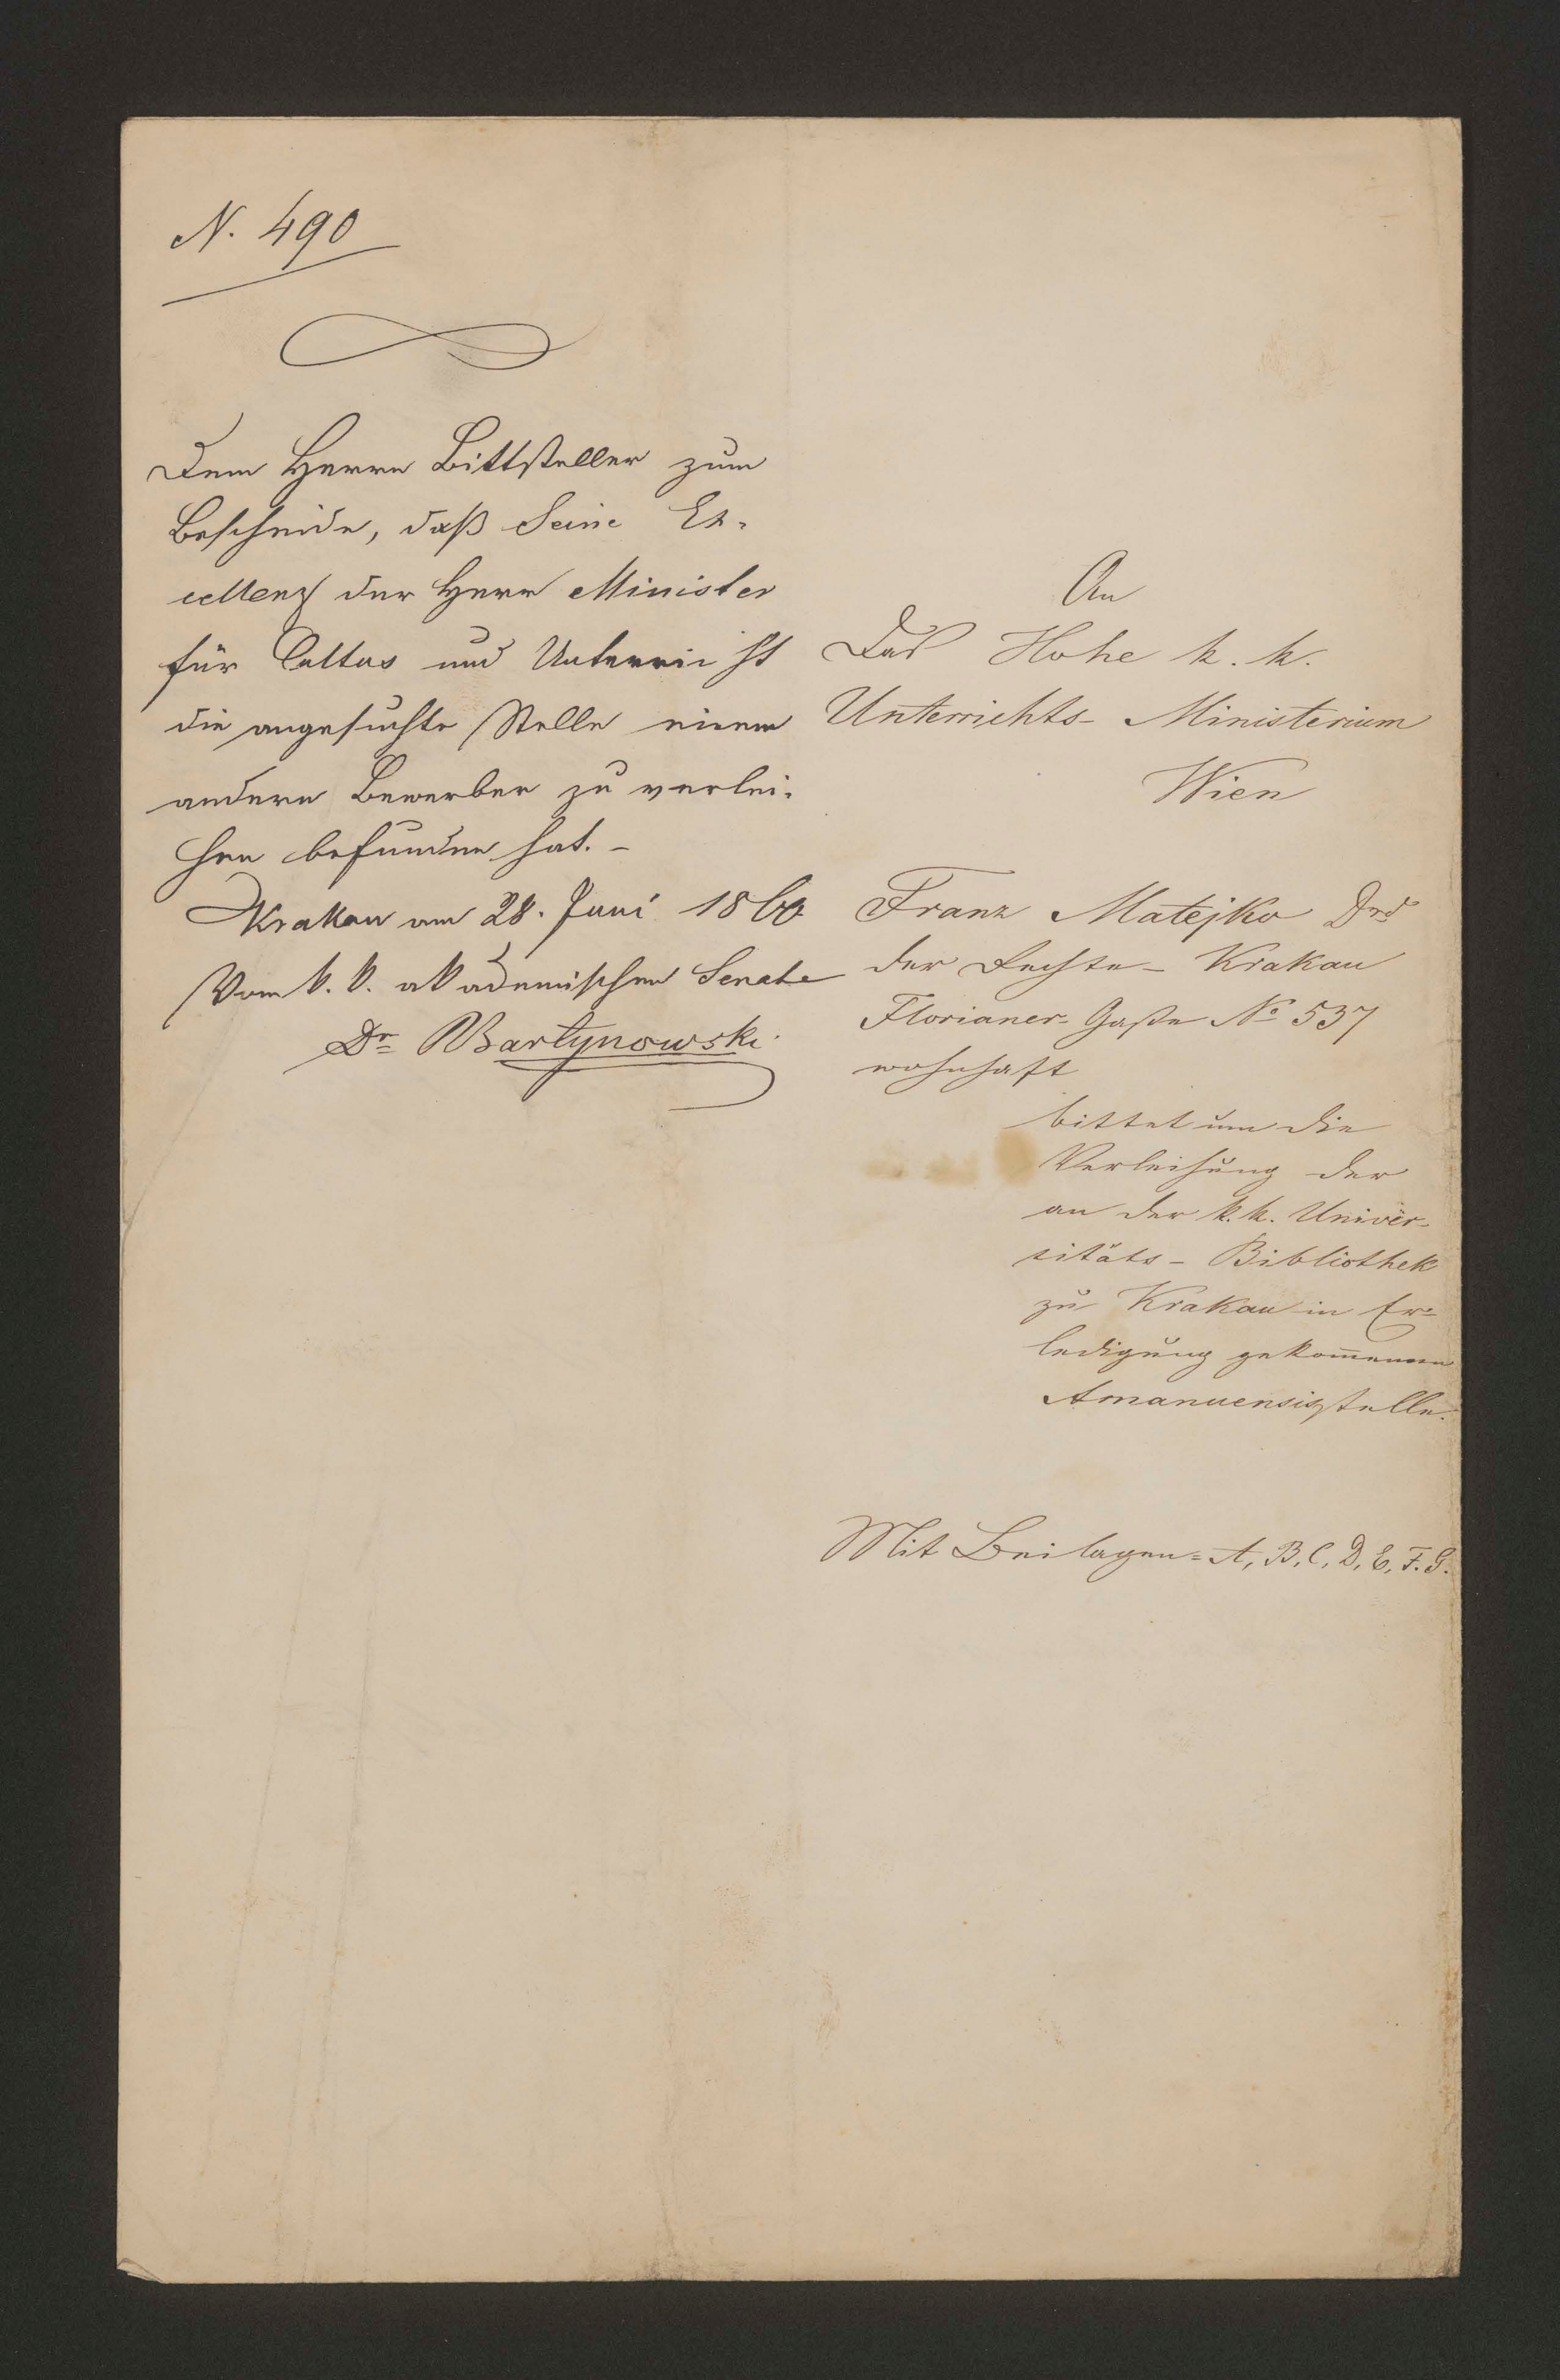 N. 490
Dem Herrn Bittsteller zum
Bescheide, daß Seine Ex-
cellenz der Herr Minister
für Cultus und Unterricht
die angesuchte Stelle einem
andern Bewerber zu verlei-
hen befunden hat. –
Krakau am 28. Juni 1860
Vom k. k. akademischen Senate
Dr Bartynowski
An
Das Hohe k. k.
Unterrichts- Ministerium
Wien
Franz Matejko Drd
der Rechte – Krakau
Florianer- Gaße No 537
wohnhaft
bittet um die
Verleihung der
an der k. k. Univer-
sitäts – Bibliothek
zu Krakau in Er-
ledigung gekom̄enen
Amanuensisstelle.
Mit Beilagen = A, B, C, D, E, F. G.